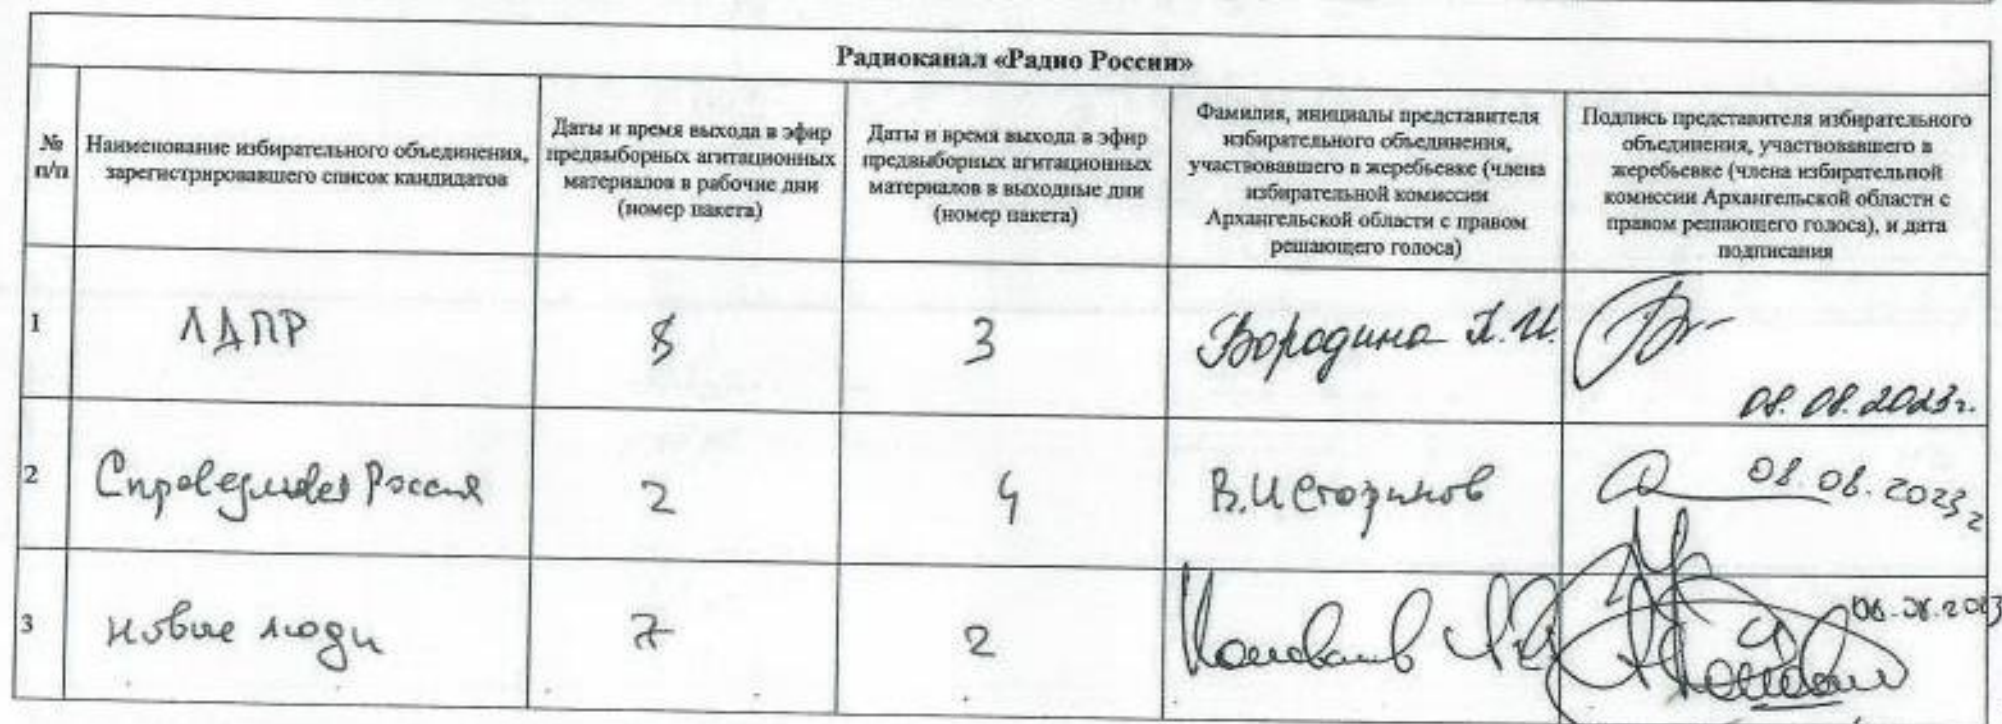 Радиоканал «Радио России»
№
п/п
Наименование избирательного объединения,
зарегистрировавшего список кандидатов
Даты и время выхода в эфир
предвыборных агитационных
материалов в рабочие дни
(номер пакета)
Даты и время выхода в эфир
предвыборных агитационных
материалов в выходные дни
(номер пакета)
Фамилия, инициалы представителя
избирательного объединения,
участвовавшего в жеребьевке (члена
избирательной комиссии
Архангельской области с правом
решающего голоса)
Подпись представителя избирательного
объединения, участвовавшего в
жеребьевке (члена избирательной
комиссии Архангельской области с
правом решающего голоса), и дата
подписания
1
ЛДПР
3
Бородина
08.08.2023г.
2
Справедливая Россия
2
4
В.И
08.08.2023г
3
Новые люди
7
2